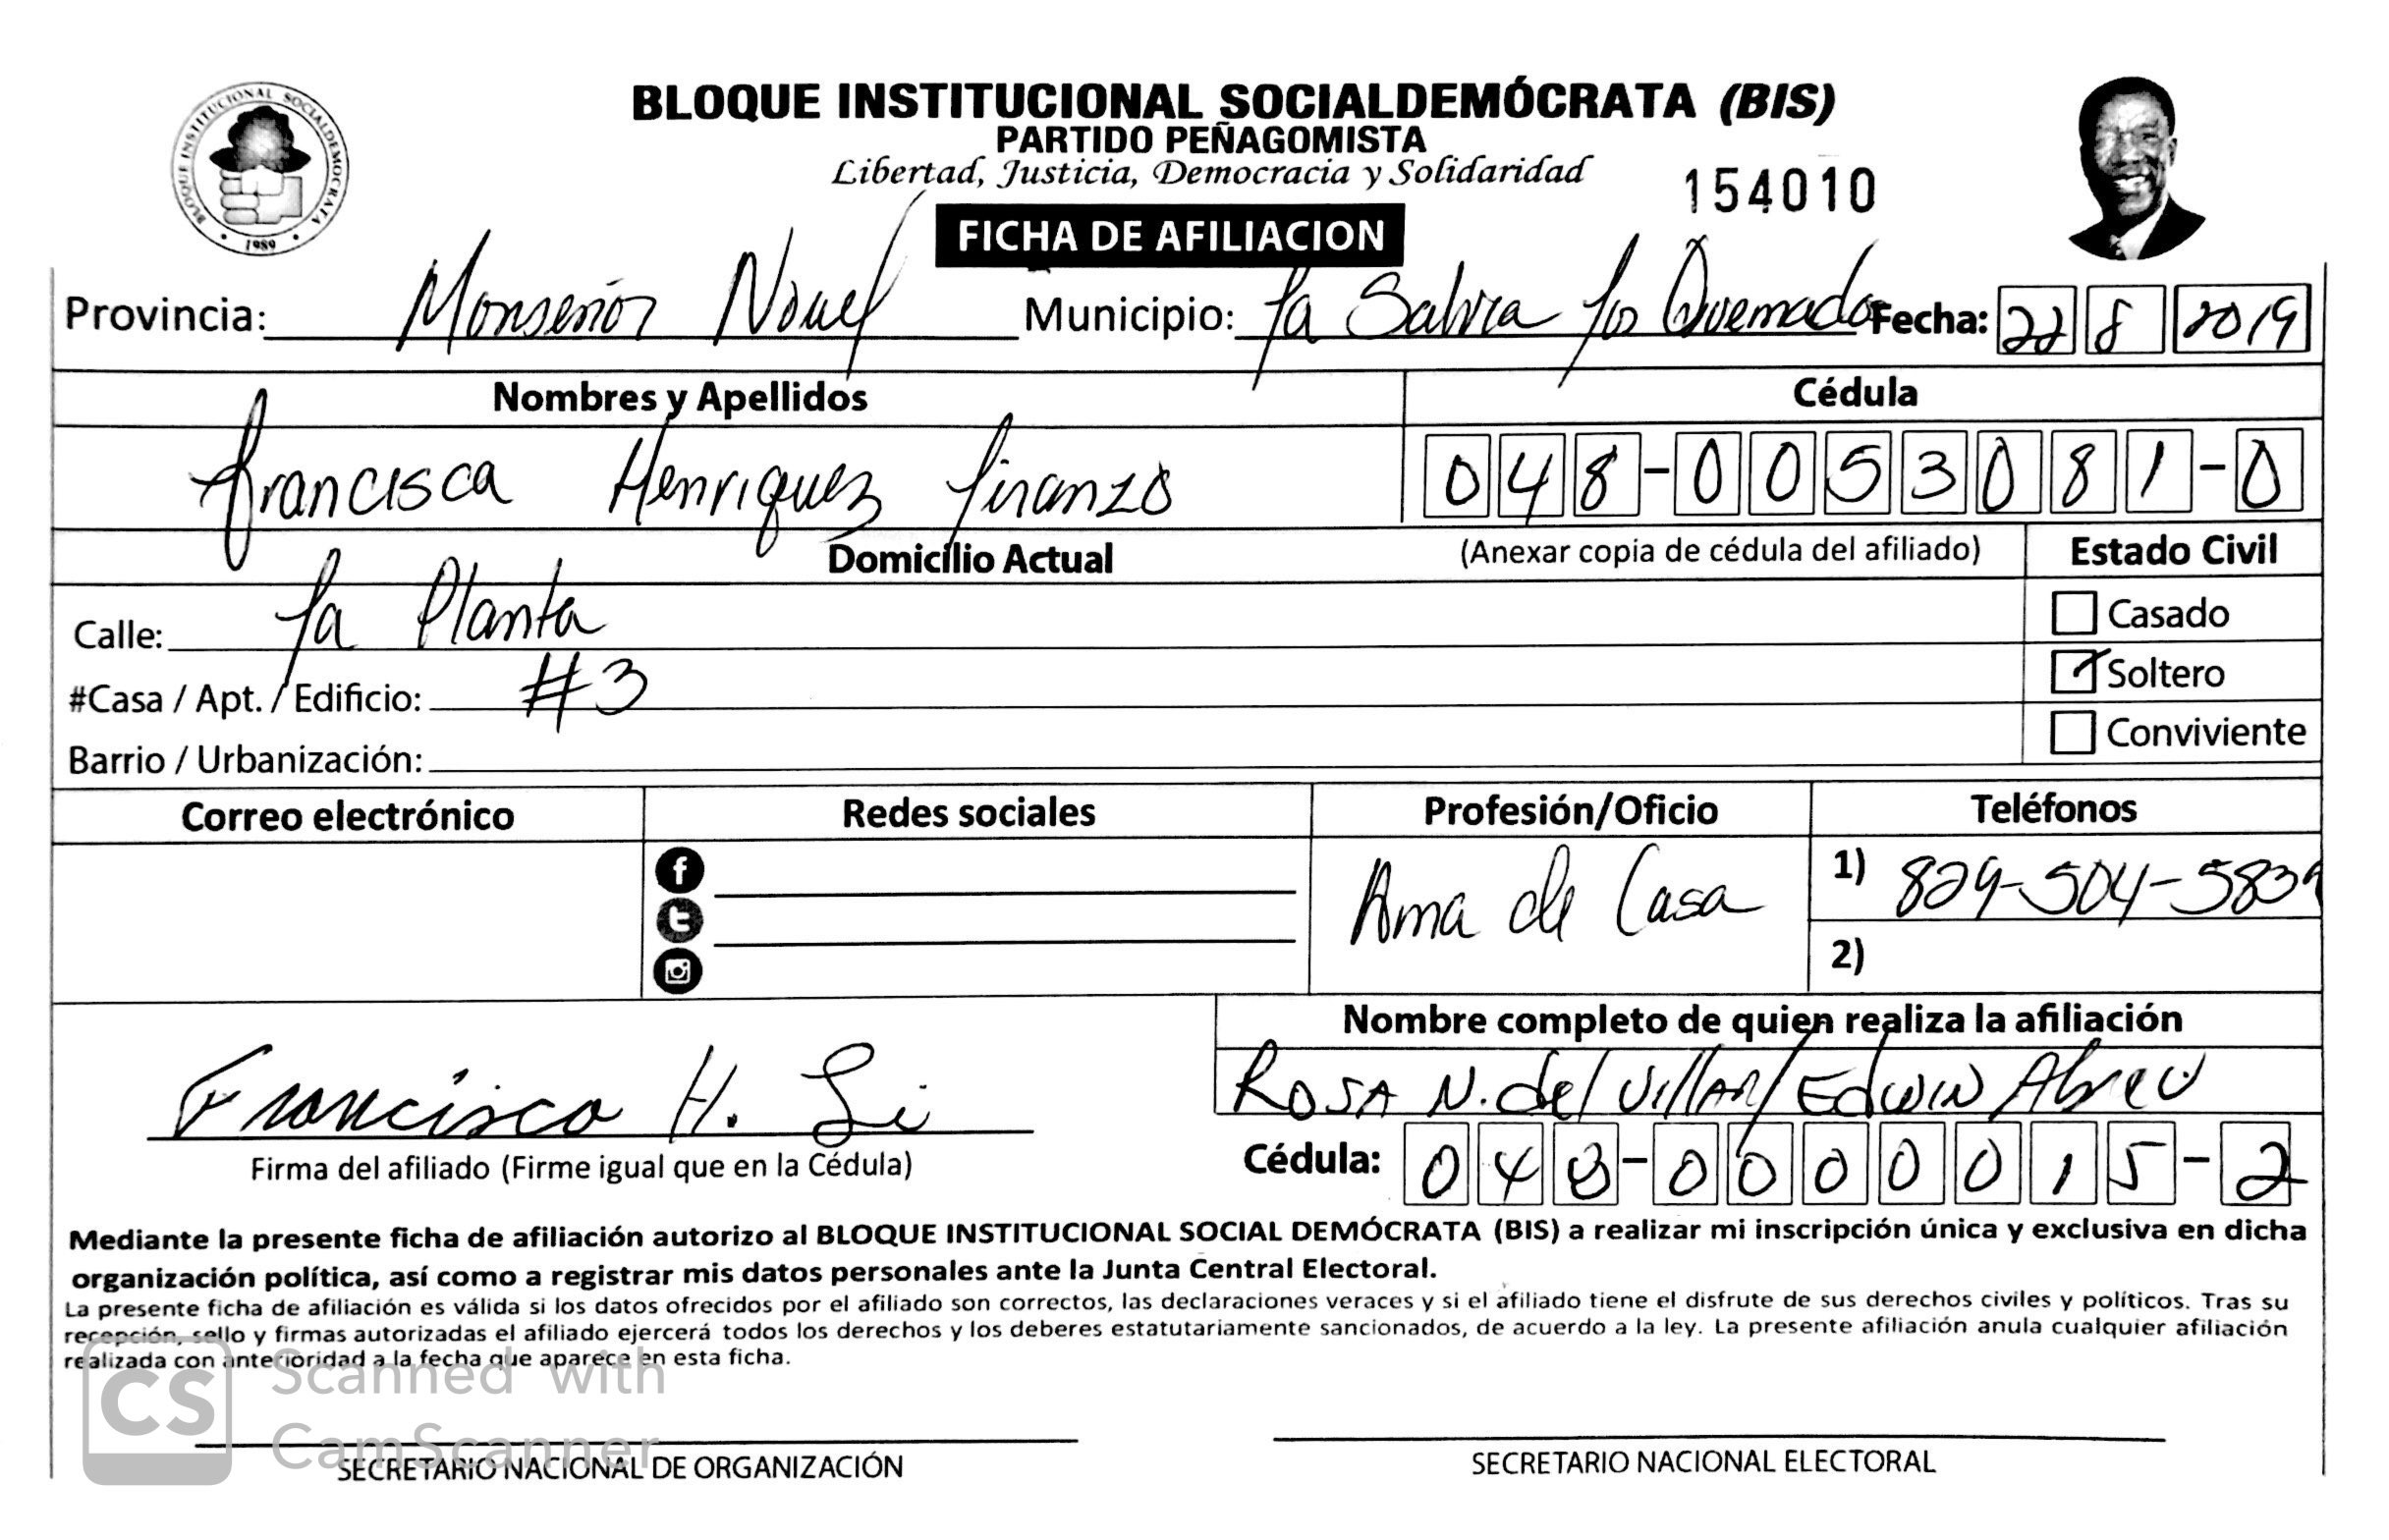 BLOQUE INSTITUCIONAL SOCIALDEMOCRATA
1989
BLOQUE INSTITUCIONAL SOCIALDEMÓCRATA (BIS)
PARTIDO PEÑAGOMISTA
Libertad, Justicia, Democracia y Solidaridad
154010
FICHA DE AFILIACION
Provincia: Monseñor Nouel Municipio: La Salvia Los Quemados Fecha: 22 8 2019
Nombres y Apellidos Cédula
Francisca Henriquez 048-0053081-0
Domicilio Actual (Anexar copia de cédula del afiliado) Estado Civil
Calle: La Planta Casado
#Casa / Apt. / Edificio: #3 Soltero
Barrio / Urbanización: Conviviente
Correo electrónico Redes sociales Profesión/Oficio Teléfonos
Ama de Casa 1) 829-504-5839
2)
Nombre completo de quien realiza la afiliación
Francisca H. Li ROSA N. del Villar/Edwin Abreu
Firma del afiliado (Firme igual que en la Cédula) Cédula: 048-0000015-2
Mediante la presente ficha de afiliación autorizo al BLOQUE INSTITUCIONAL SOCIAL DEMÓCRATA (BIS) a realizar mi inscripción única y exclusiva en dicha
organización política, así como a registrar mis datos personales ante la Junta Central Electoral.
La presente ficha de afiliación es válida si los datos ofrecidos por el afiliado son correctos, las declaraciones veraces y si el afiliado tiene el disfrute de sus derechos civiles y políticos. Tras su
recepción, sello y firmas autorizadas el afiliado ejercerá todos los derechos y los deberes estatutariamente sancionados, de acuerdo a la ley. La presente afiliación anula cualquier afiliación
realizada con anterioridad a la fecha que aparece en esta ficha.
CS Scanned with
CamScanner
SECRETARIO NACIONAL DE ORGANIZACIÓN SECRETARIO NACIONAL ELECTORAL